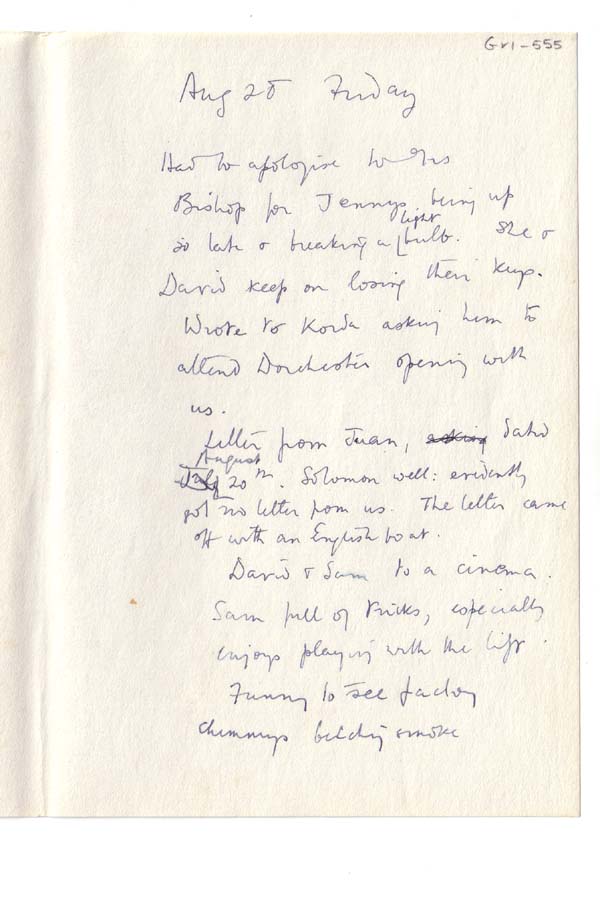 Gri-555
Aug 28 Friday
Had to apologise to Mrs
Bishop for Jennys being up
so late & breaking a light bulb. She &
David keep on losing their keys.
Wrote to Korda asking him to
attend Dorchester opening with
us.
Letter from Juan, asking dated
July August 20th. Solomon well: evidently
got no letter from us. The letter came
off with an English boat.
David & Sam to a cinema.
Sam full of tricks, especially
enjoys playing with the lift.
Funny to see factory
chimneys belching smoke